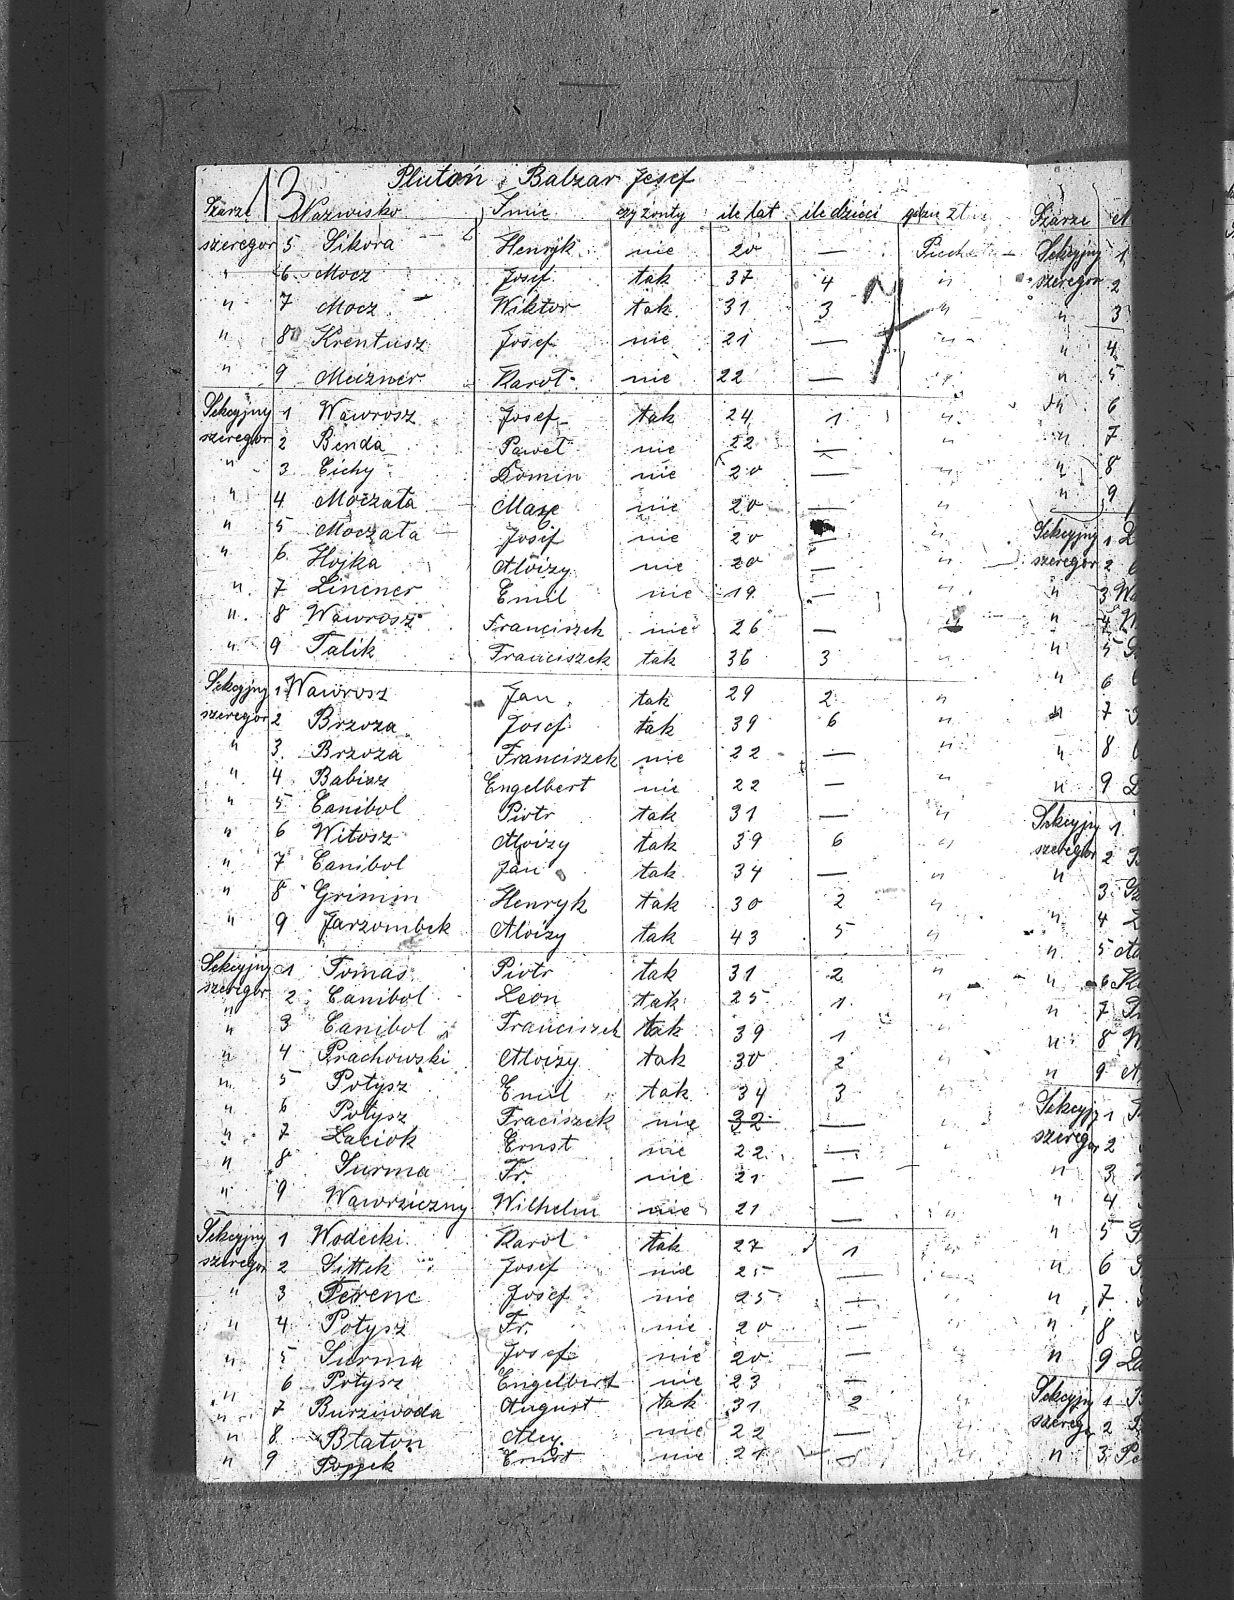 13 Pluton Balzar Josef
Szarże Nazwisko Imie czy żonty ile lat ile dzieci gdzie
szeregor 5 Sikora Henryk nie 20 —
" 6 Mocz Josef tak 37 4 "
" 7 Mocz Wiktor tak 31 3 "
" 8 Krentusz Josef nie 21 — "
" 9 Meizner Karol nie 22 — "
Sekcyjny 1 Wawrosz Josef tak 24 1 "
szeregor 2 Benda Paweł nie 22 — "
" 3 Cichy Domin nie 20 — "
" 4 Moczała nie 20 — "
" 5 Moczała Josef nie 20 — "
" 6 Hojka Aloizy nie 20 — "
" 7 Lincner Emil nie 19 — "
" 8 Wawrosz Franciszek nie 26 —
" 9 Talik Franciszek tak 36 3 "
Sekcyjny 1 Wawrosz Jan tak 29 2 "
szeregor 2 Brzoza Josef tak 39 6 "
" 3 Brzoza Franciszek nie 22 — "
" 4 Babisz Engelbert nie 22 — "
" 5 Canibol Piotr tak 31 — "
" 6 Witosz Aloizy tak 39 6 "
" 7 Canibol Jan tak 34 — "
" 8 Grimm Henryk tak 30 2 "
" 9 Jarzombek Aloizy tak 43 5 "
Sekcyjny 1 Tomas Piotr tak 31 2 "
szeregor 2 Canibol Leon tak 25 1 "
" 3 Canibol Franciszek tak 39 1 "
" 4 Prachowski Aloizy tak 30 2 "
" 5 Potysz Emil tak 34 3 "
" 6 Potysz Fraciszek nie 32 — "
" 7 Laciok Ernst nie 22 — "
" 8 Surma Fr. nie 21 — "
" 9 Wawrziczny Wilhelm nie 21 — "
Sekcyjny 1 Wodecki Karol tak 27 1 "
szeregor 2 Sittek Josef nie 25 — "
" 3 Ferenc Josef nie 25 — "
" 4 Potysz Fr. nie 20 — "
" 5 Surma Josef nie 20 — "
" 6 Potysz Engelbert nie 23 — "
" 7 Burziwoda August tak 31 2 "
" 8 Blaton nie 22 — "
" 9 Poppek Ernst nie 21 "
Szarże
Sekcyjny 1
szeregor 2
" 3
" 4
" 5
" 6
" 7
" 8
" 9
Sekcyjny 1
szeregor 2
" 3
" 4
" 5
" 6
" 7
" 8
" 9
Sekcyjny 1
szeregor 2
" 3
" 4
" 5
" 6
" 7
" 8
" 9
Sekcyj 1
szeregor 2
" 3
" 4
" 5
" 6
" 7
" 8
" 9
Sekcyjny 1
szereg 2
" 3